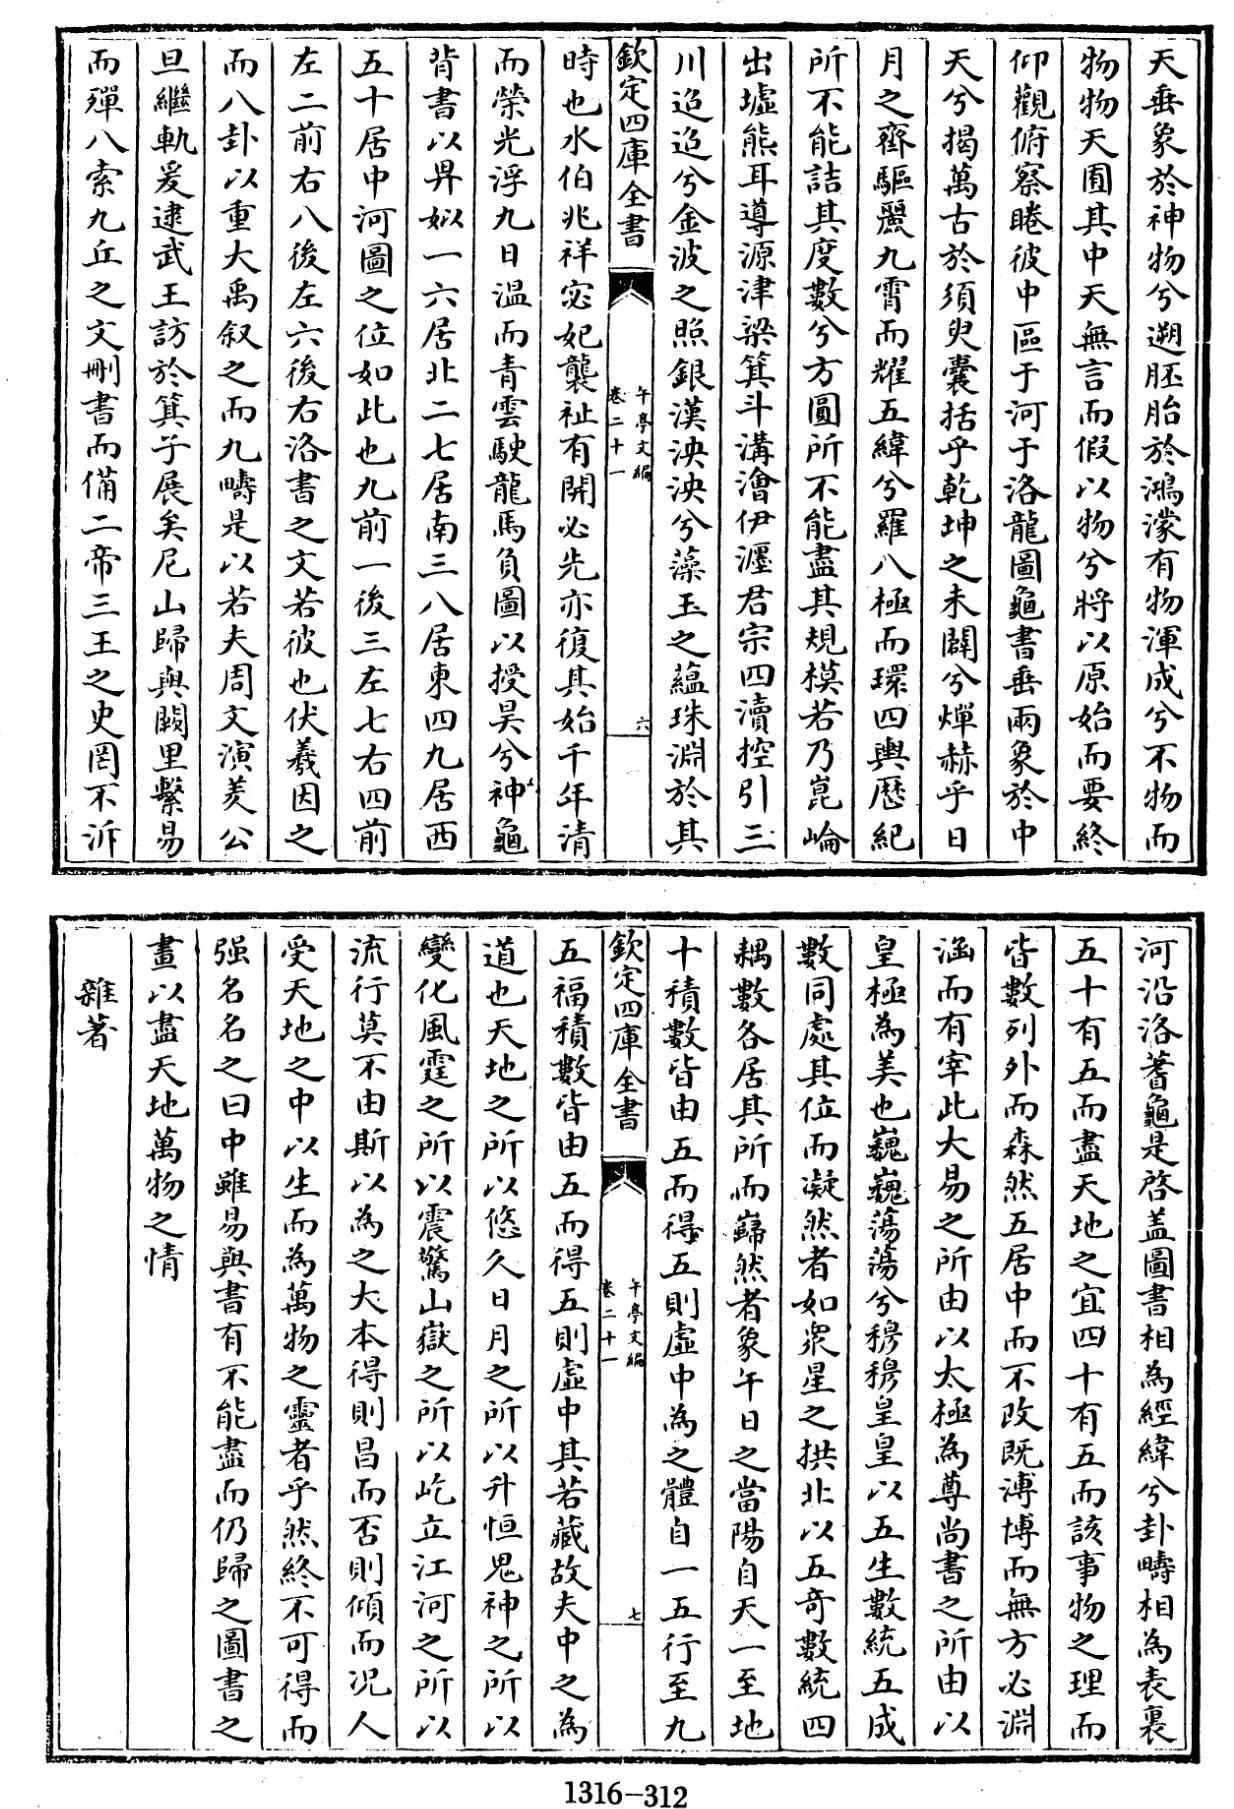 天垂象於神物兮遡胚胎於鴻濛有物渾成兮不物而
物物天圓其中天無言而假以物兮將以原始而要終
仰觀俯察睠彼中區于河于洛龍圖龜書垂兩象於中
天兮揭萬古於須臾囊括乎乾坤之未闢兮燀赫乎日
月之齊驅麗九霄而耀五緯兮羅八極而環四輿歷紀
所不能詰其度數兮方圓所不能盡其規模若乃崑崘
出墟熊耳導源津梁箕斗溝澮伊瀍君宗四瀆控引三
川迢迢兮金波之照銀漢泱泱兮藻玉之蘊珠淵於其
欽定四庫全書
午亭文編
卷二十一
六
時也水伯兆祥宓妃襲祉有開必先亦復其始千年清
而榮光浮九日温而青雲駛龍馬負圖以授昊兮神龜
背書以畀姒一六居北二七居南三八居東四九居西
五十居中河圖之位如此也九前一後三左七右四前
左二前右八後左六後右洛書之文若彼也伏羲因之
而八卦以重大禹叙之而九疇是以若夫周文演羑公
旦繼軌爰逮武王訪於箕子展矣尼山歸與闕里繫易
而殫八索九丘之文刪書而備二帝三王之史罔不泝
河沿洛蓍龜是啓盖圖書相為經緯兮卦疇相為表裏
五十有五而盡天地之宜四十有五而該事物之理而
皆數列外而森然五居中而不改既溥博而無方必淵
涵而有宰此大易之所由以太極為尊尚書之所由以
皇極為美也巍巍蕩蕩兮穆穆皇皇以五生數統五成
數同處其位而凝然者如衆星之拱北以五竒數統四
耦數各居其所而巋然者象午日之當陽自天一至地
十積數皆由五而得五則虛中為之體自一五行至九
欽定四庫全書
午亭文編
卷二十一
七
五福積數皆由五而得五則虛中其若藏故夫中之為
道也天地之所以悠久日月之所以升恒鬼神之所以
變化風霆之所以震驚山嶽之所以屹立江河之所以
流行莫不由斯以為之大本得則昌而否則傾而况人
受天地之中以生而為萬物之靈者乎然終不可得而
强名名之曰中雖易與書有不能盡而仍歸之圖書之
畫以盡天地萬物之情
雜著
1316-312